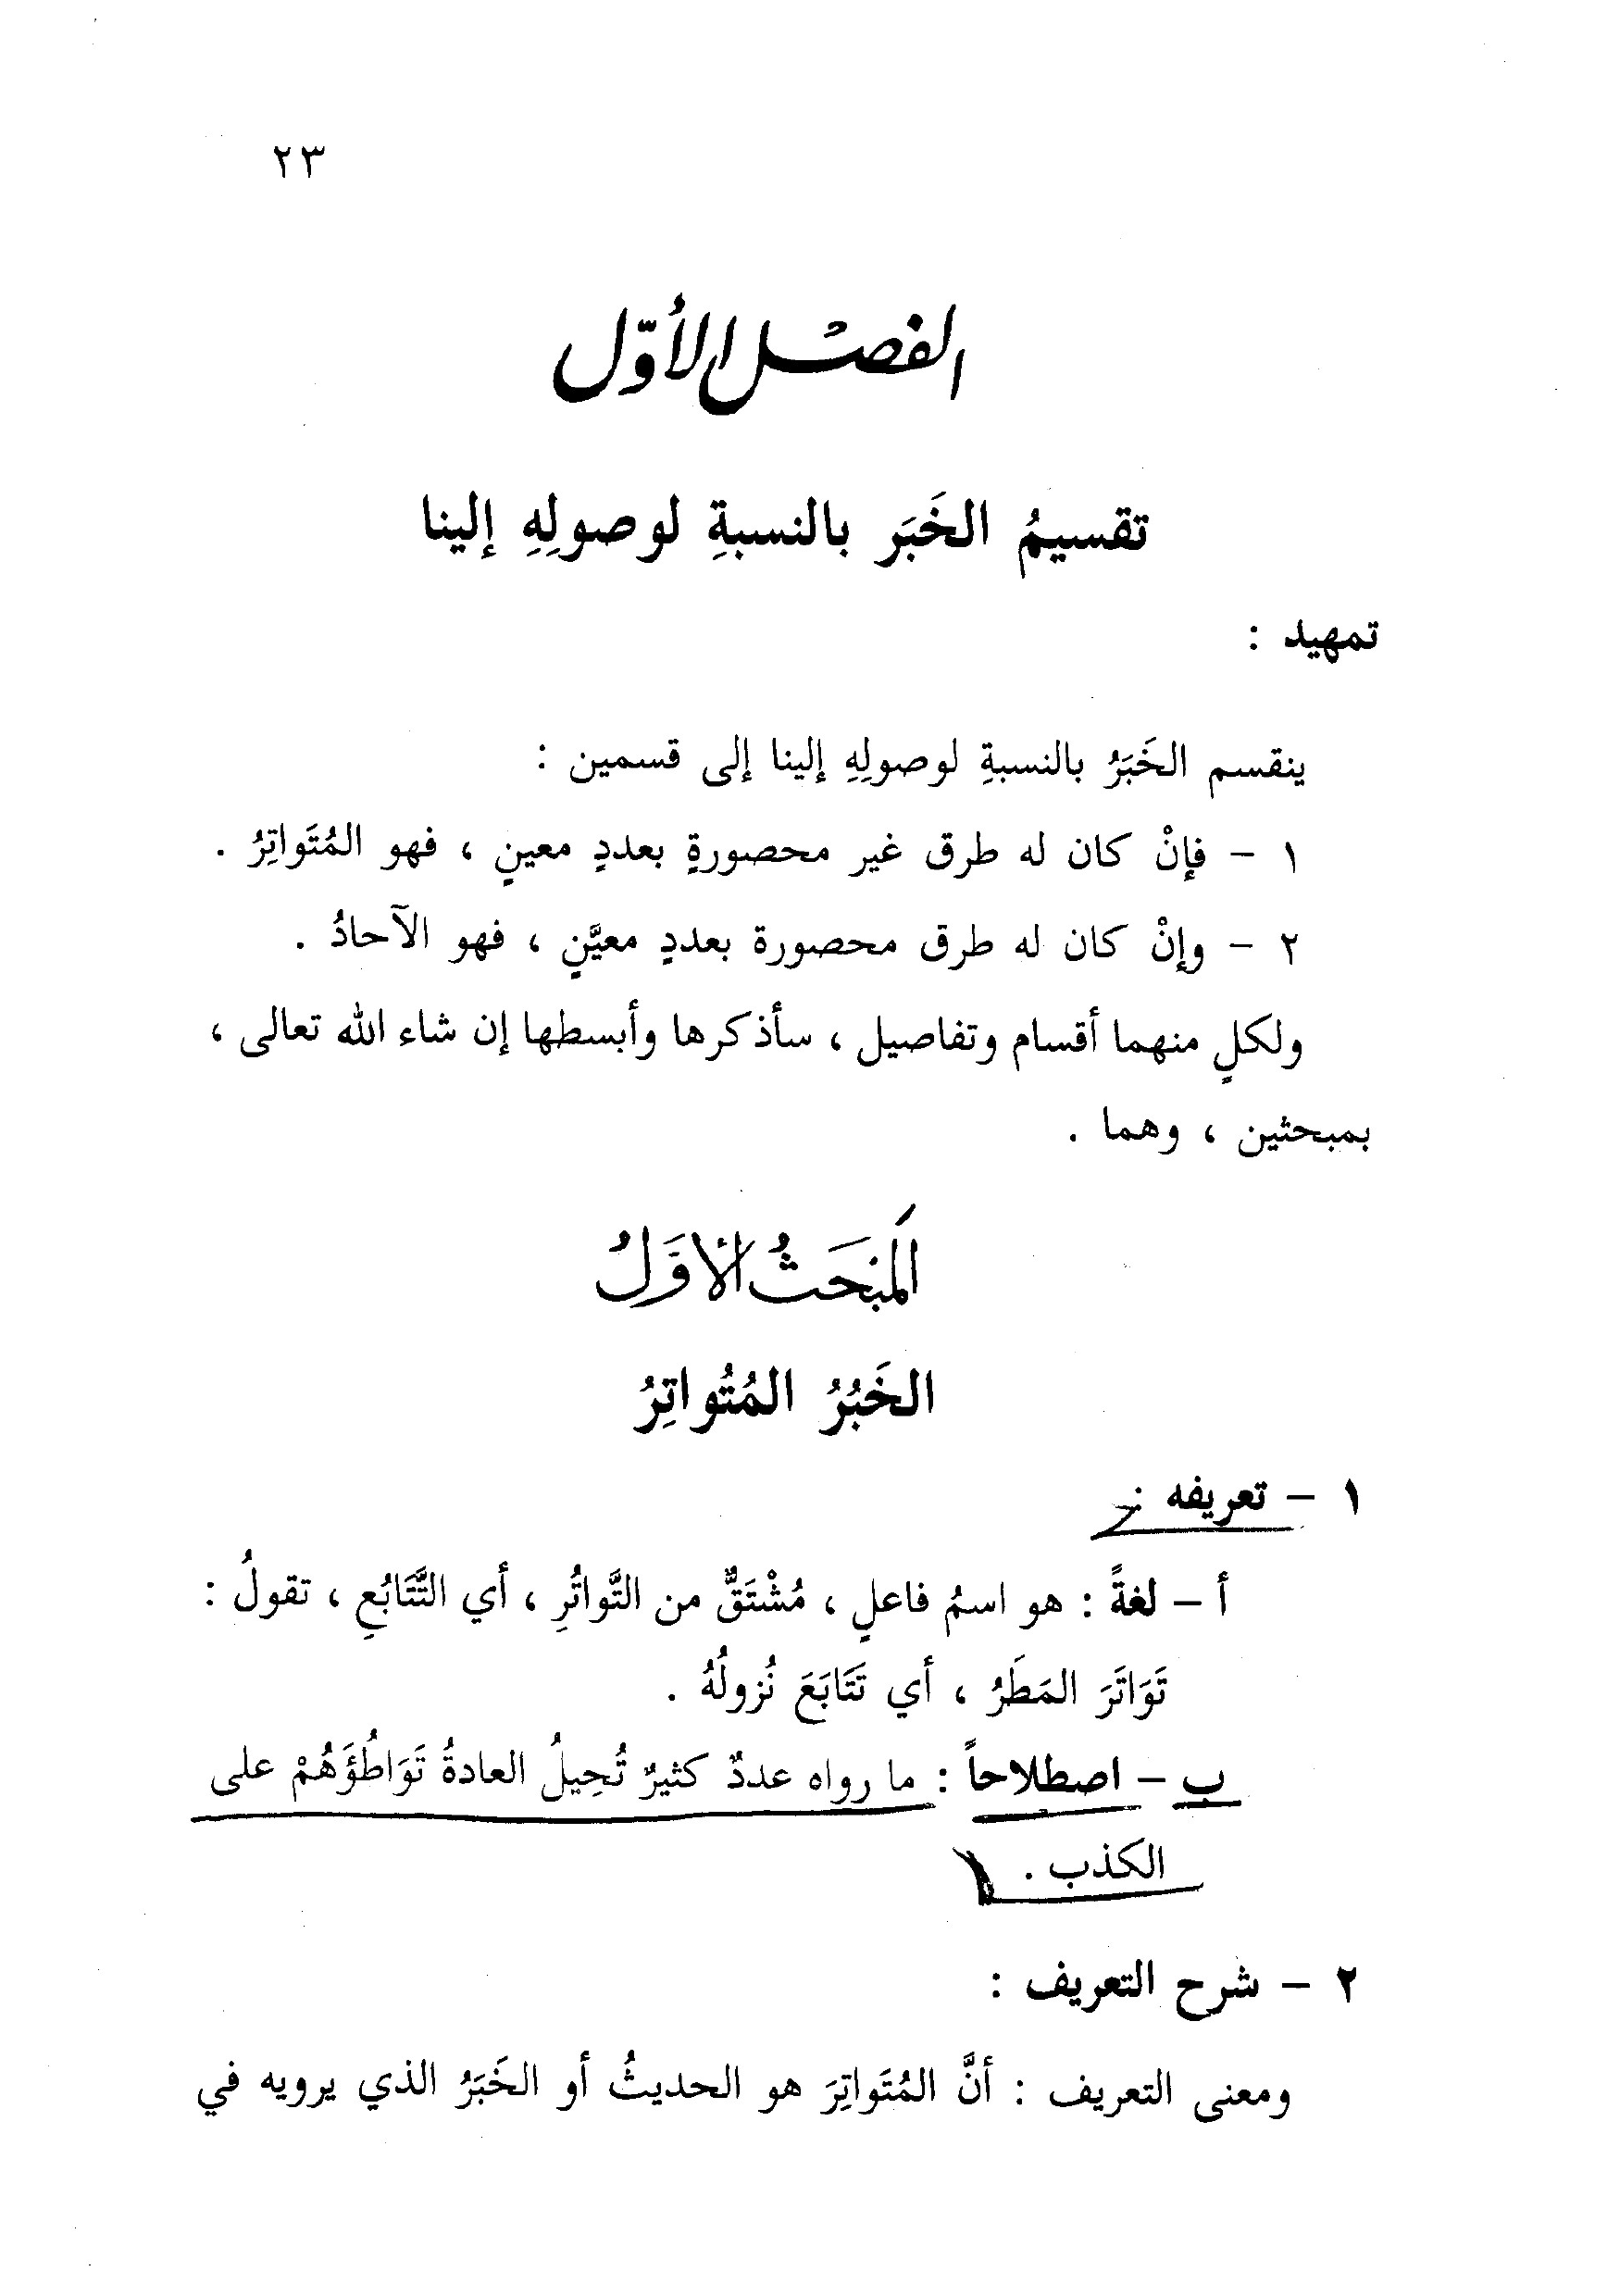 ٢٣
الفصل الأوّل
تقسيمُ الخَبَر بالنسبةِ لوصولِهِ إلينا
تمهيد :
ينقسم الخَبَرُ بالنسبةِ لوصولِهِ إلينا إلى قسمين :
١ – فإنْ كان له طرق غير محصورةٍ بعددٍ معينٍ ، فهو المُتَواتِرُ .
٢ – وإنْ كان له طرق محصورة بعددٍ معيَّنٍ ، فهو الآحادُ .
ولكلٍ منهما أقسام وتفاصيل ، سأذكرها وأبسطها إن شاء الله تعالى ،
بمبحثين ، وهما .
المَبْحَثُ الأوَّلُ
الخَبُرُ المُتُواتِرُ
١ – تعريفه :
أ – لغةً : هو اسمُ فاعلٍ ، مُشْتَقٌّ من التَّواتُرِ ، أي التَّتَابُعِ ، تقولُ :
تَوَاتَرَ المَطَرُ ، أي تَتَابَعَ نُزولُهُ .
ب – اصطلاحاً : ما رواه عددٌ كثيرٌ تُحِيلُ العادةُ تَوَاطُؤَهُمْ على
الكذب .
٢ – شرح التعريف :
ومعنى التعريف : أنَّ المُتَواتِرَ هو الحديثُ أو الخَبَرُ الذي يرويه في